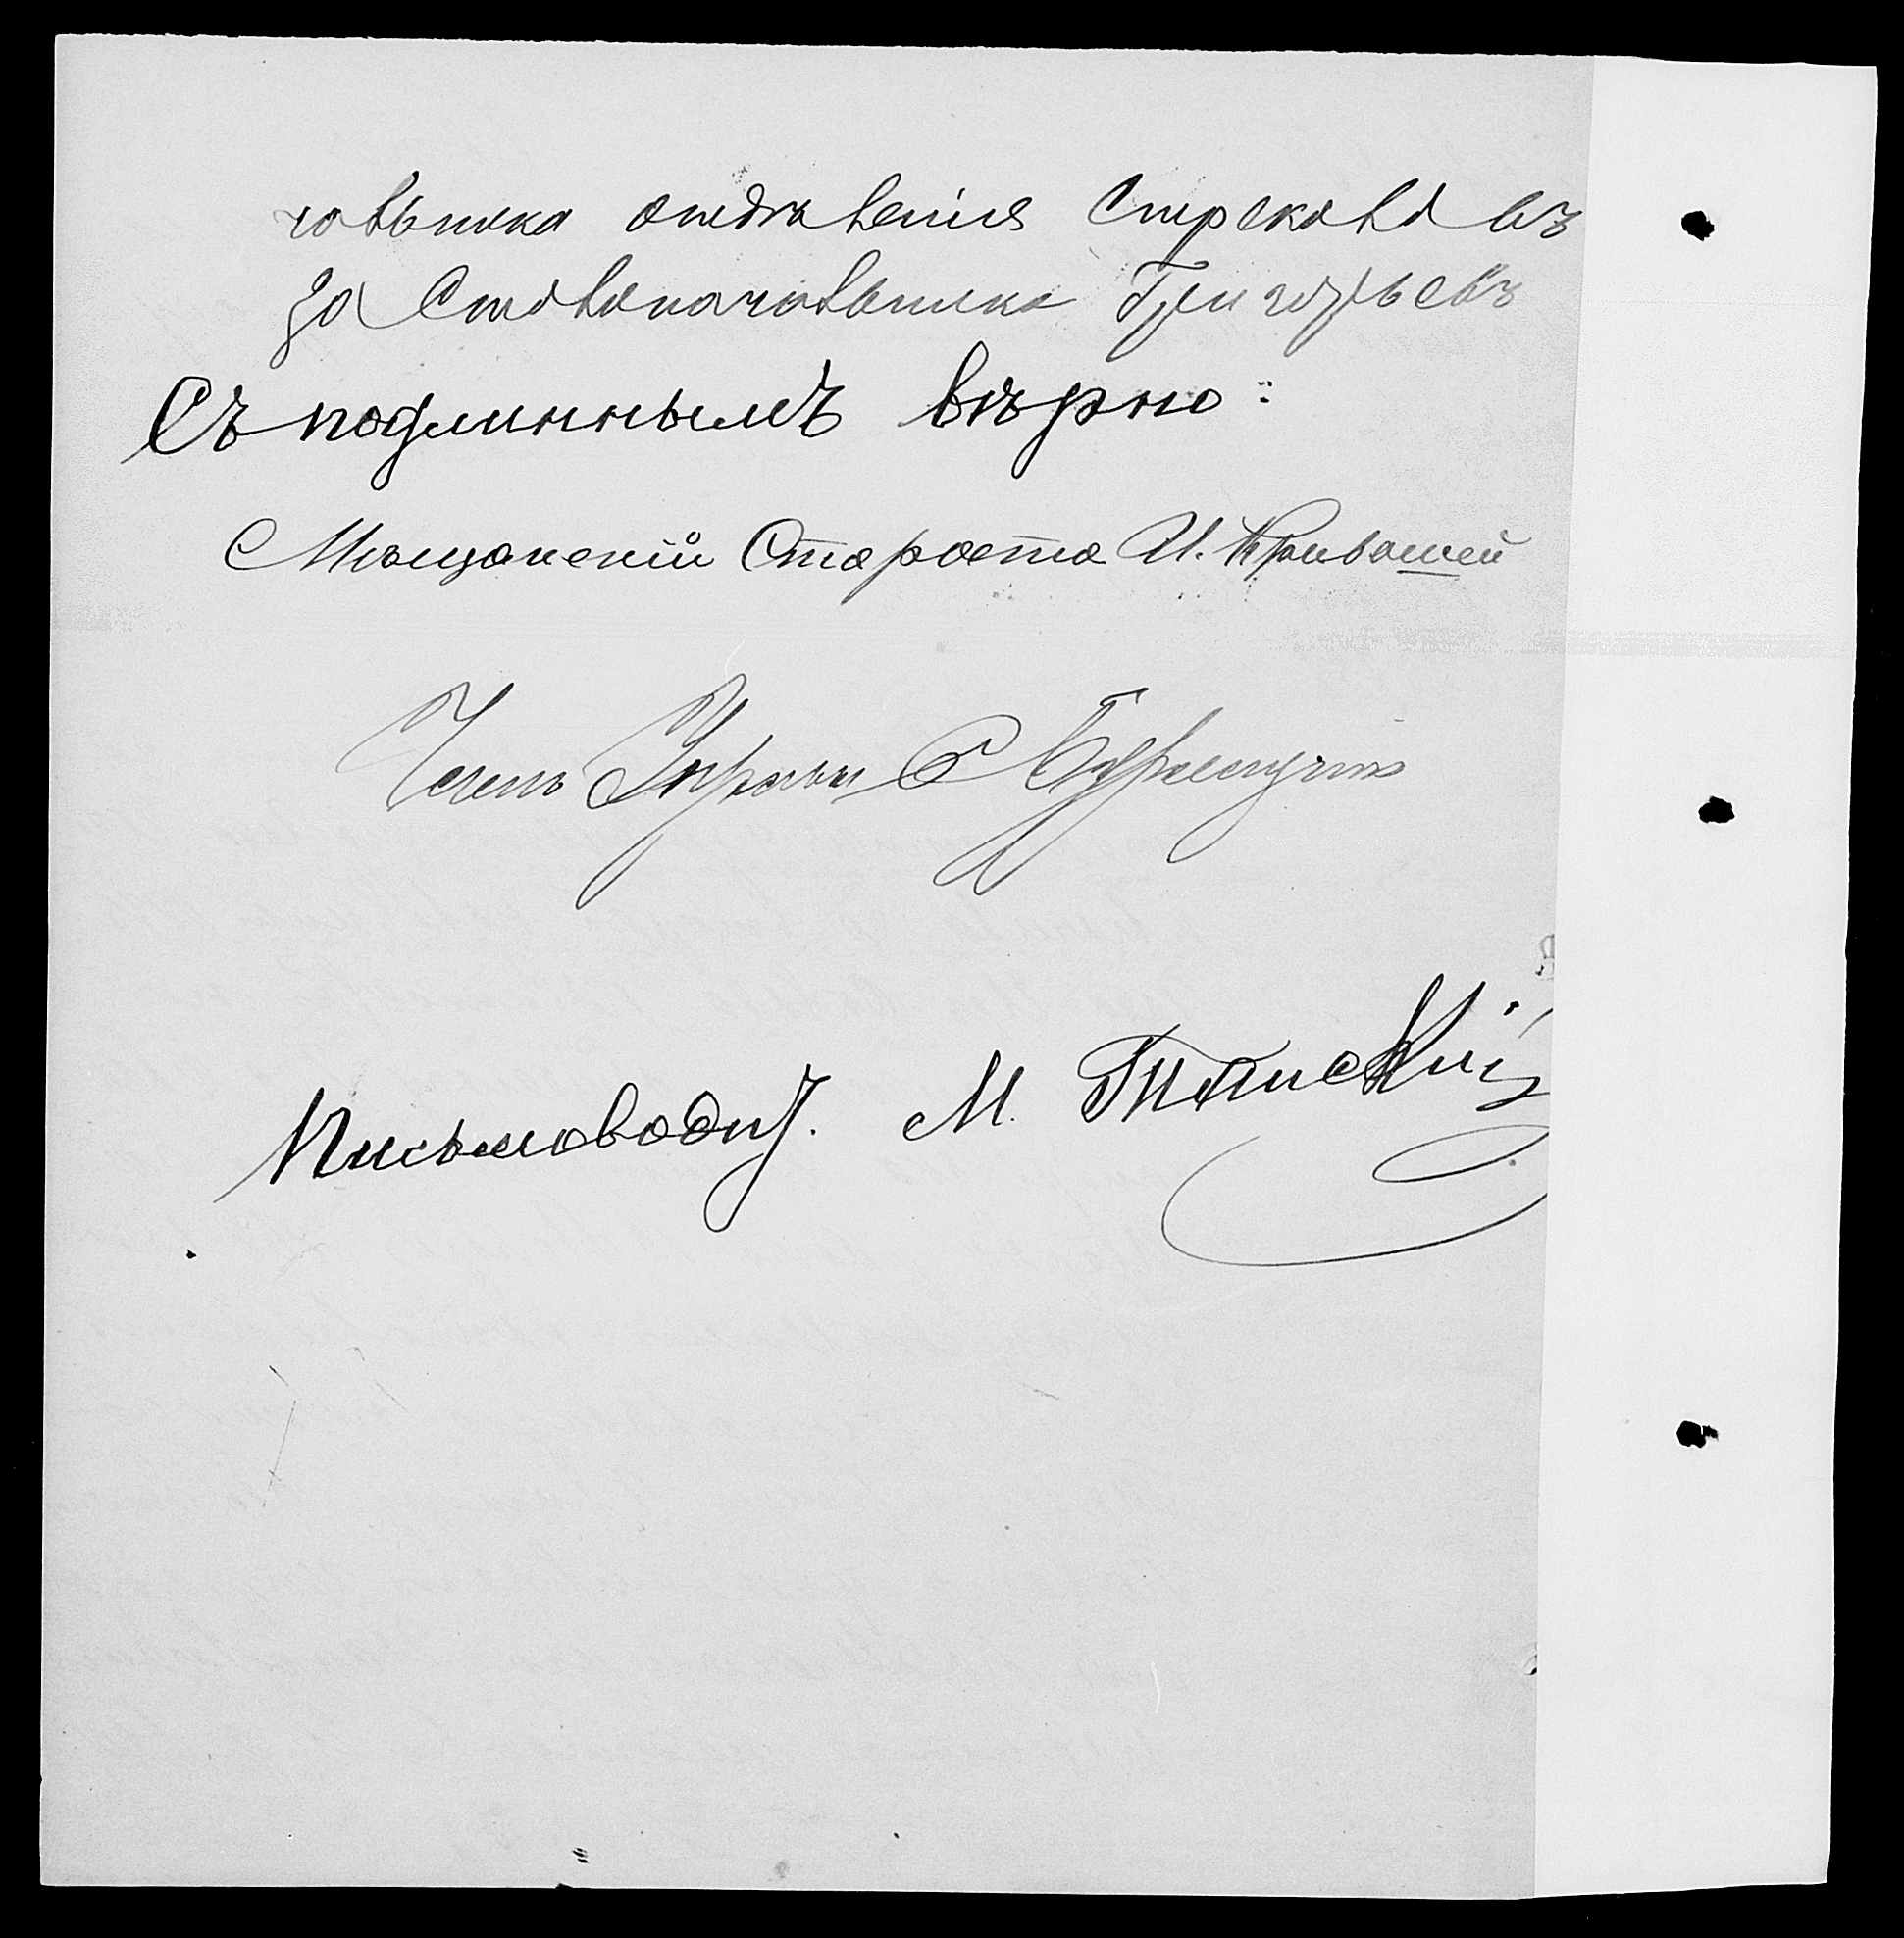 чальника отдѣленія Стрекаловъ
за Столоначальника Григорьевъ
Съ подлиннымъ вѣрно:
Мѣщанскій Староста И. Кривошей
Членъ Управы С
Письмоводит. М.